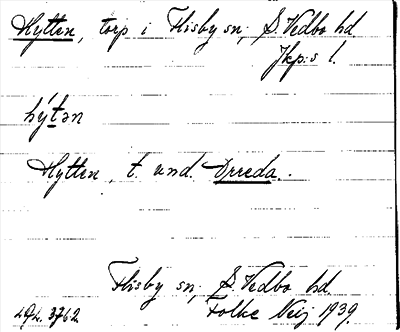 Hytten, torp i Flisby sn; S. Vedbo hd
Jkp:s l.
hýtən
Hytten, t. und. Örreda.
Flisby sn; S. Vedbo hd
Folke Neij 1939.
3762